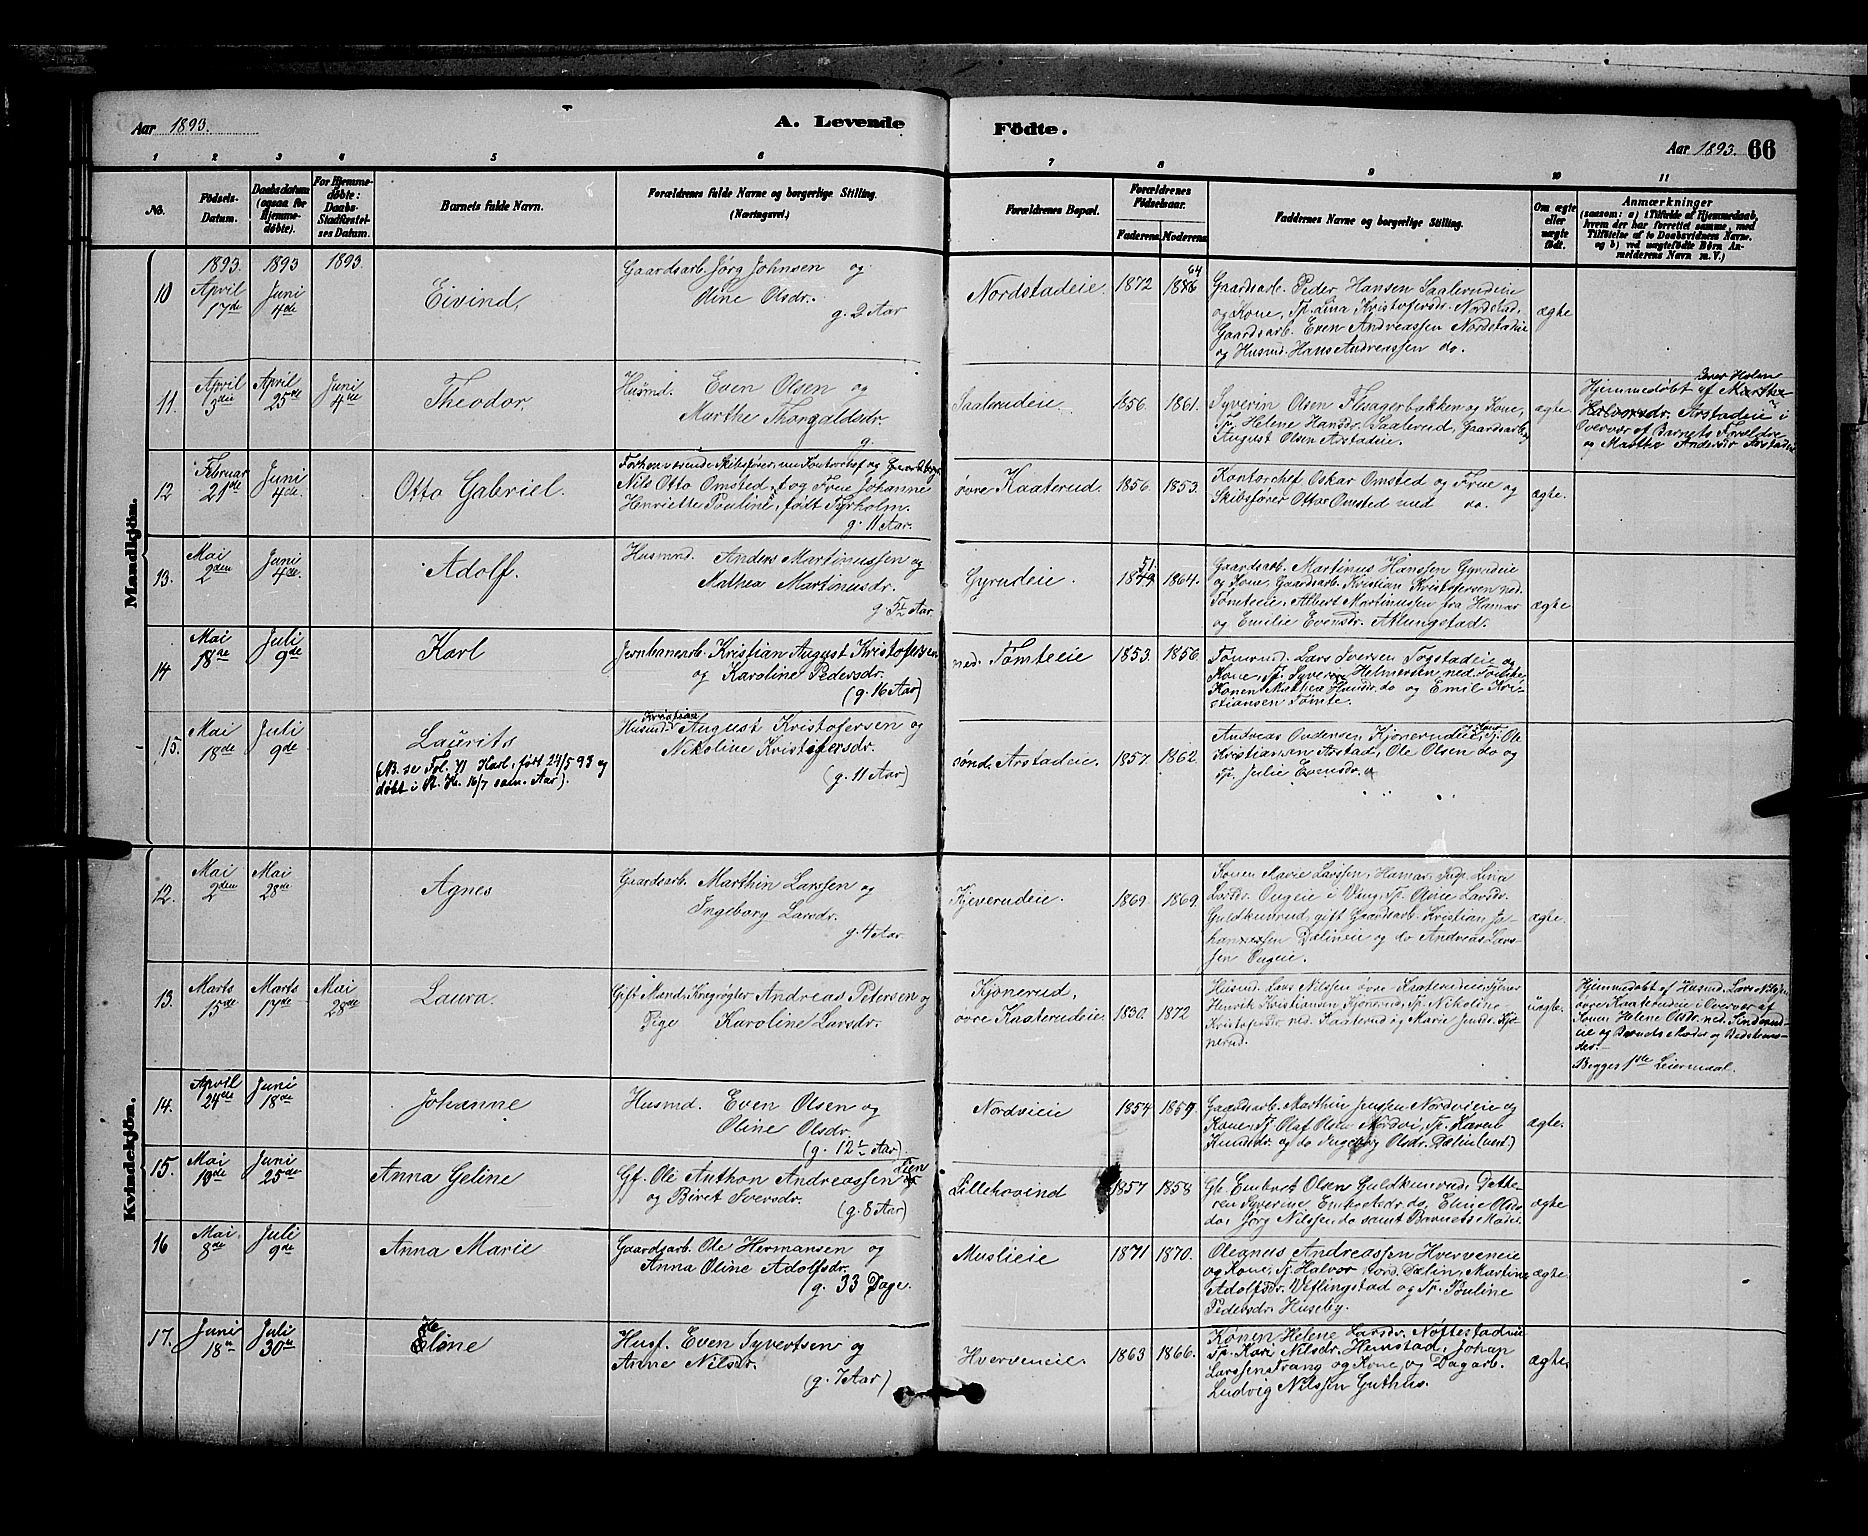 Aar 1893.
A. Levende Födte.
Aar 1893. 66
1 2 3 4 5 6 7 8 9 10 11
No.
Födsels-Datum.
Daabsdatum (ogsaa for Hjemmedøbte).
For Hjemmedøbte: Daabs-Stadfæstelses Datum.
Barnets fulde Navn.
Forældrenes fulde Navne og borgerlige Stilling. (Næringsvei.)
Forældrenes Bopæl.
Forældrenes Fødselsaar.
Faderens. Moderens.
Faddernes Navne og borgerlige Stilling.
Om ægte eller uægte født.
Anmærkninger
(saasom: a) i Tilfælde af Hjemmedaab, hvem der har forrettet samme, med Tilføielse af to Daabsvidners Navne. og b) ved uægtefødte Børn Anmelderens Navn m. V.)
Mandkjön.
1893. 1893 1893.
10 April 17de Juni 4de
Eivind,
Gaardsarb. Jørg Johnsen og
Oline Olsdr.
g. 2 Aar
Nordstadeie. 1872 1866 64
Gaardsarb. Peder Hansen Saalerudeie
og Kone, Tp. Lina Kristofersdr. Nordstad,
Gaardsarb. Even Andreassen Nordstadeie
og Husmd. Hans Andreassen do.
ægte
11. April 3die April 25de Juni 4de
Theodor.
Husmd. Even Olsen og
Marthe Thorvaldsdr.
g.
Saalerudeie. 1856. 1861.
Syverin Olsen Flesagerbakken og Kone,
Tp. Helene Hansdr. Saalerud, Gaardsarb.
August Olsen Arstadeie.
ægte.
Iver Holen
Hjemmedøbt af Marthe
Halvorsdr. Arstadeie i
Overvær af Barnets Forældre
og Marthe Andersdr. Arstadeie
12 Februar 21de Juni 4de
Otto Gabriel.
Forhenværende Skibsfører, nu Kontorchef og Gaardbrug.
Nils Otto Omsted, og Frue Johanne
Henriette Pouline, født Fyrholm.
g. 11 Aar.
øvre Kaaterud. 1856. 1853.
Kontorchef Oskar Omsted og Frue og
Skibsfører Otto Omsted med do.
ægte.
13. Mai 2den Juni 4de
Adolf.
Husmnd. Anders Martinussen og
Mathea Martinusdr.
g. 5½ Aar
Gyrudeie. 1849 51. 1864.
Gaardsarb. Martinus Hanssen Gyrudeie
og Kone, Gaardsarb. Kristian Kristofersen ned.
Tømteeie. Albert Martinussen fra Hamar
og Emilie Evensdr. Atlungstad.
ægte
14. Mai 18de Juli 9de
Karl
Jernbanearb. Kristian August Kristofersen
og Karoline Pedersdr.
(g. 16 Aar)
ned. Tømteeie 1853. 1856.
Tømmd. Lars Iversen Togstadeie og
Kone, Tp. Syver Helmersen ned. Tømte,
Konen Mathea Hansdr. do og Emil Kristiansen Tømte.
15. Mai 18de Juli 9de
Laurits
(NB. se Fol. 71 Karl, født 24/5 93 og
døbt i St. K. 16/7 sam. Aar).
Kristian
Husmd. August Kristofersen og
Nikoline Kristofersdr.
(g. 11 Aar)
sønd. Arstadeie. 1857. 1862.
Andreas Kjonerudeie, Tp. Ole
Kristiansen Arstad, Ole Olsen do og
Tp. Julie Evensdr.
Kvindekjön.
12. Mai 2den Mai 28de
Agnes
Gaardsarb. Marthin Larssen og
Ingeborg Larsdr.
g. 4 Aar.
Kjeverudeie. 1869. 1869.
Konen Marie Larssen, Hamar, Lina
Larsdr. Ougeie i Vang, Tp. Oline Larsdr.
Guldkuverud, gift Gaardsarb. Kristian Johannessen Dælineie og do Andreas Larssen Ougeie.
ægte.
13. Marts 15de Marts 17de Mai 28de
Laura.
Gift Mand, Kragrøgter Andreas Petersen og
Pige Karoline Larsdr.
Kjonerud,
øvre Kaaterudeie. 1830. 1872
Husmd. Lars Nilssen øvre Kaaterudeie,
Henrik Kristiansen Kjonerud, Tp. Nikoline
Kristofersdr. ned. Kaaterud og Marie Jensdr. Kjonerud.
uægte.
Hjemmedøbt af Husmd. Lars Nilssen,
øvre Kaaterudeie i Overvær af
Konen Helene Olsdr. ned. Sinderudeie og Barnets Moder og Bedstemoder.
Begges 1ste Leiermaal.
14. April 24de Juni 18de
Johanne
Husmd. Even Olsen og
Oline Olsdr.
(g. 12½ Aar)
Nordvieie 1854 1859.
Gaardsarb. Marthin Jenssen Nordvieie og
Kone, Tp. Olaf Olsen Nordvi, Tp. Karen
Knudsdr. og do Ingeborg Olsdr. Dælin (vest.)
ægte.
15. Mai 19de Juni 25de
Anna Geline
Gf. Ole Anthon Andreassen Lien
og Biret Iversdr.
(g. 8 Aar)
Lillehovind 1857 1858
Gb. Embret Olsen Guldkuverud, Datteren Syverine Embretsdr. do, Eline Olsdr.
do, Jørg Nilssen do samt Barnets Moder
ægte
16 Mai 8de Juli 9de
Anna Marie
Gaardsarb. Ole Hermansen og
Anna Oline Adolfsdr.
(g. 33 Dage.
Mustieie 1871 1870.
Olegnus Andreassen Hverveneie
og Kone, Tp. Halvor nord. Dælin, Martine
Adolfsdr. Viflingstad og Tp. Pouline
Pedersdr. Huseby.
ægte
17. Juni 18de Juli 30te
Eline
Husf. Even Syvertsen og
Anne Nilsdr.
(g. 7 Aar)
Hverveneie. 1863 1866.
Konen Helene Larsdr. Nøttestadeie
Tp. Kari Nilsdr. Hemstad, Johan
Larssen Frang og Kone, og Dagarb.
Ludvig Nilssen Guthus.
ægte.